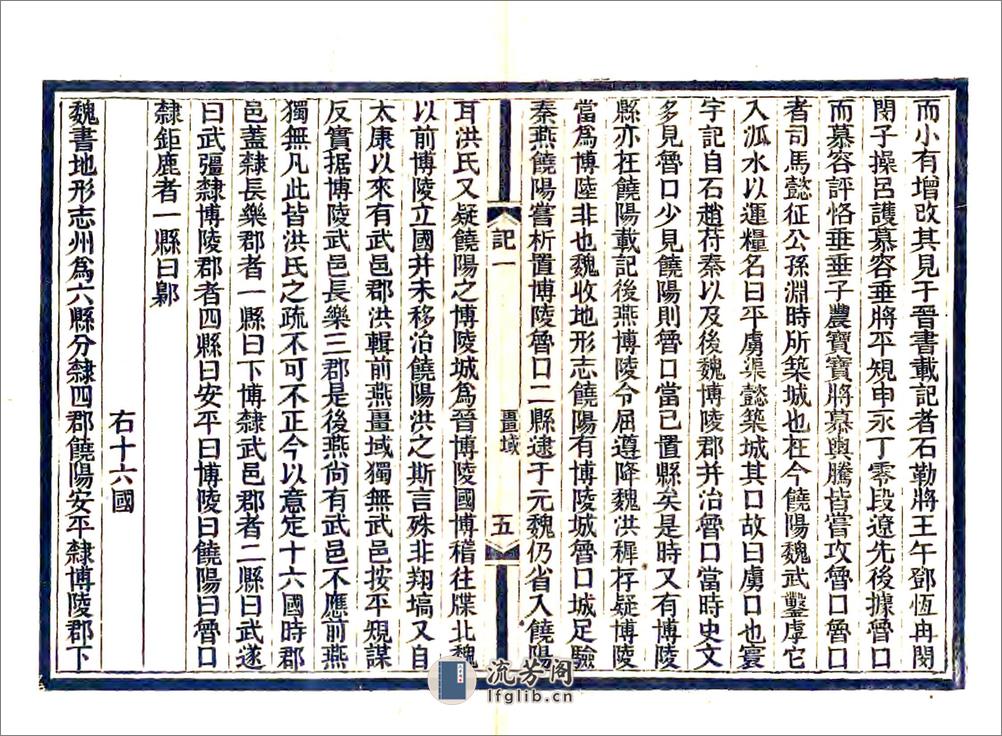 而小有增改其見于晉書載記者石勒將王午鄧恆冉閔
閔子操呂護慕容垂將平規申永丁零段遼先後據魯口
而慕容評恪垂垂子農寶寶將慕輿騰皆嘗攻魯口魯口
者司馬懿征公孫淵時所築城也在今饒陽魏武鑿虖它
入泒水以運糧名曰平虜渠懿築城其口故曰虜口也寰
宇記自石趙苻秦以及後魏博陵郡并治魯口當時史文
多見魯口少見饒陽則魯口當已置縣矣是時又有博陵
縣亦在饒陽載記後燕博陵令屈遵降魏洪穉存疑博陵
當爲博陸非也魏收地形志饒陽有博陵城魯口城足驗
秦燕饒陽嘗析置博陵魯口二縣逮于元魏仍省入饒陽
記一
畺域
五
耳洪氏又疑饒陽之博陵城爲晉博陵國博稽往牒北魏
以前博陵立國并未移治饒陽洪之斯言殊非翔塙又自
太康以來有武邑郡洪輯前燕畺域獨無武邑按平規謀
反實据博陵武邑長樂三郡是後燕尙有武邑不應前燕
獨無凡此皆洪氏之疏不可不正今以意定十六國時郡
邑蓋隸長樂郡者一縣曰下博隸武邑郡者二縣曰武遂
曰武彊隸博陵郡者四縣曰安平曰博陵曰饒陽曰魯口
隸鉅鹿者一縣曰鄡
右十六國
魏書地形志州爲六縣分隸四郡饒陽安平隸博陵郡下
流芳阁
lfglib.cn